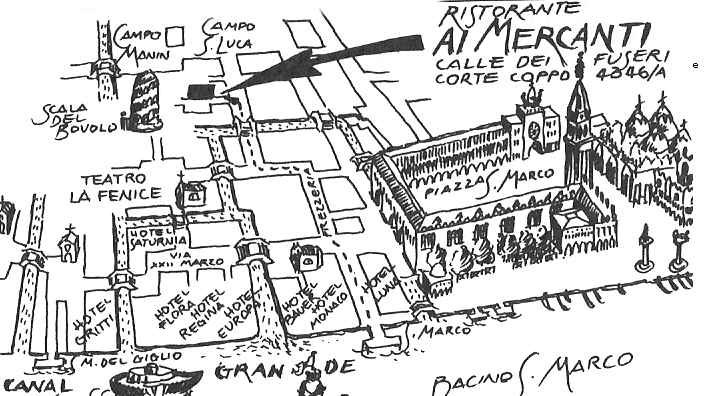 RISTORANTE
AI MERCANTI
CALLE DEI FUSERI
CORTE COPPO 4346/A
e
CAMPO
MANIN
CAMPO
S. LUCA
SCALA
DEL
BOVOLO
TEATRO
LA FENICE
PIAZZA S. MARCO
FREZZERI
HOTEL
SATURNIA
VIA
XXII MARZO
HOTEL
GRITTI
HOTEL
FLORA
HOTEL
REGINA
HOTEL
EUROPA
HOTEL
BAUER
HOTEL
MONACO
HOTEL
LUNA
MARCO
M. DEL GIGLIO
CANAL GRANDE
BACINO S. MARCO